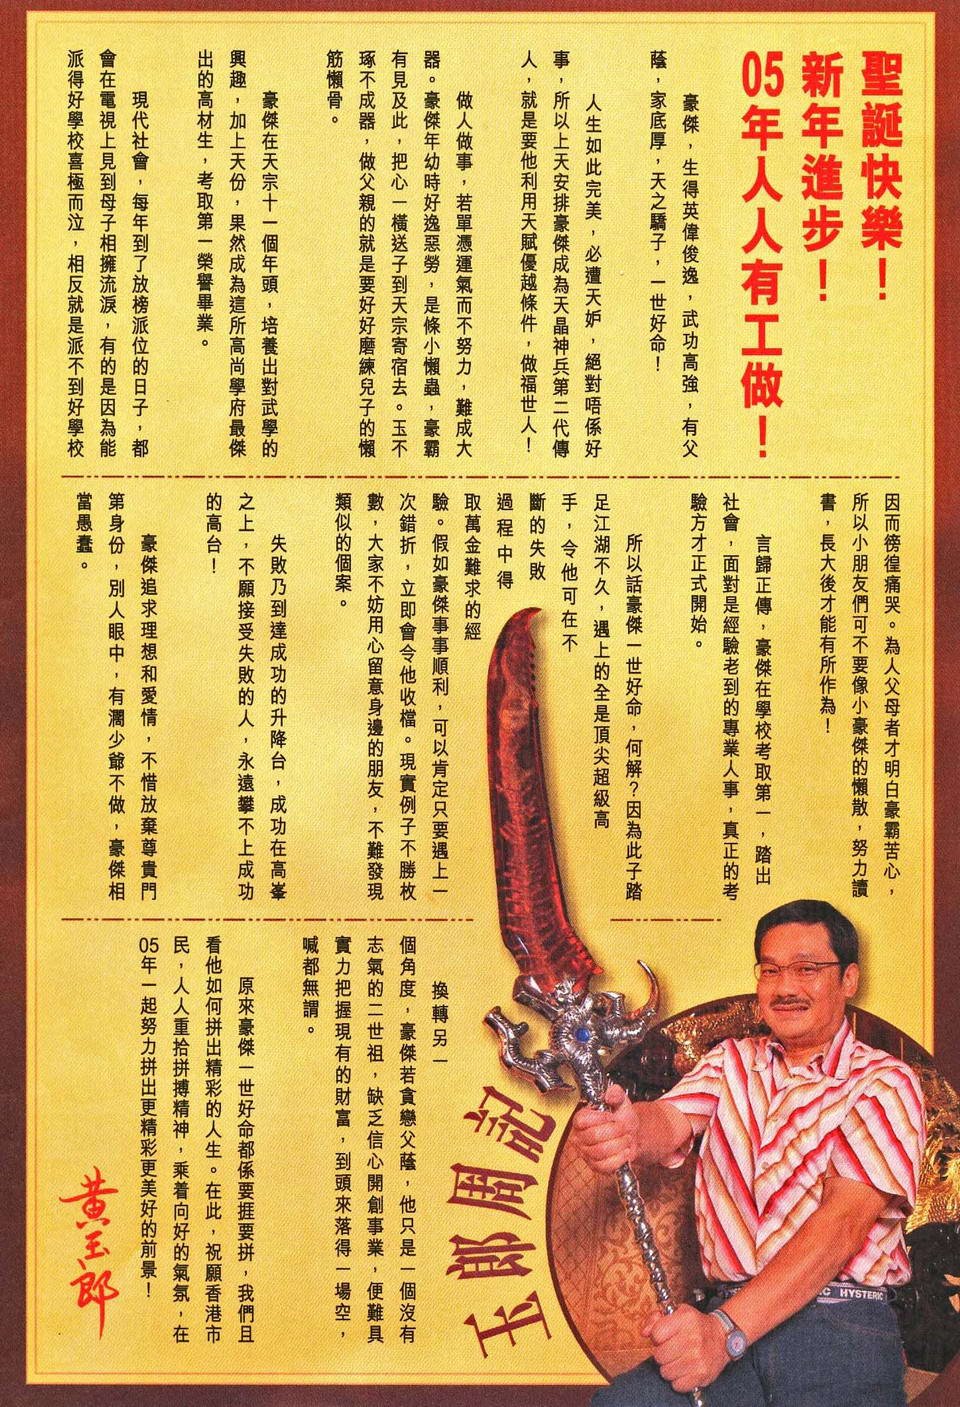 聖誕快樂！
新年進步！
05年人人有工做！
豪傑，生得英偉俊逸，武功高強，有父
蔭，家底厚，天之驕子，一世好命！
人生如此完美，必遭天妒，絕對唔係好
事，所以上天安排豪傑成為天晶神兵第二代傳
人，就是要他利用天賦優越條件，做福世人！
做人做事，若單憑運氣而不努力，難成大
器。豪傑年幼時好逸惡勞，是條小懶蟲，豪霸
有見及此，把心一橫送子到天宗寄宿去。玉不
琢不成器，做父親的就是要好好磨練兒子的懶
筋懶骨。
豪傑在天宗十一個年頭，培養出對武學的
興趣，加上天份，果然成為這所高尚學府最傑
出的高材生，考取第一榮譽畢業。
現代社會，每年到了放榜派位的日子，都
會在電視上見到母子相擁流淚，有的是因為能
派得好學校喜極而泣，相反就是派不到好學校
因而徬徨痛哭。為人父母者才明白豪霸苦心，
所以小朋友們可不要像小豪傑的懶散，努力讀
書，長大後才能有所作為！
言歸正傳，豪傑在學校考取第一，踏出
社會，面對是經驗老到的專業人事，真正的考
驗方才正式開始。
所以話豪傑一世好命，何解？因為此子踏
足江湖不久，遇上的全是頂尖超級高
手，令他可在不
斷的失敗
過程中得
取萬金難求的經
驗。假如豪傑事事順利，可以肯定只要遇上一
次錯折，立即會令他收檔。現實例子不勝枚
數，大家不妨用心留意身邊的朋友，不難發現
類似的個案。
失敗乃到達成功的升降台，成功在高峯
之上，不願接受失敗的人，永遠攀不上成功
的高台！
豪傑追求理想和愛情，不惜放棄尊貴門
第身份，別人眼中，有濶少爺不做，豪傑相
當愚蠢。
換轉另一
個角度，豪傑若貪戀父蔭，他只是一個沒有
志氣的二世祖，缺乏信心開創事業，便難具
實力把握現有的財富，到頭來落得一場空，
喊都無謂。
原來豪傑一世好命都係要捱要拼，我們且
看他如何拼出精彩的人生。在此，祝願香港市
民，人人重拾拼搏精神，乘着向好的氣氛，在
05年一起努力拼出更精彩更美好的前景！
黃玉郎
玉郎周記
HYSTERIC